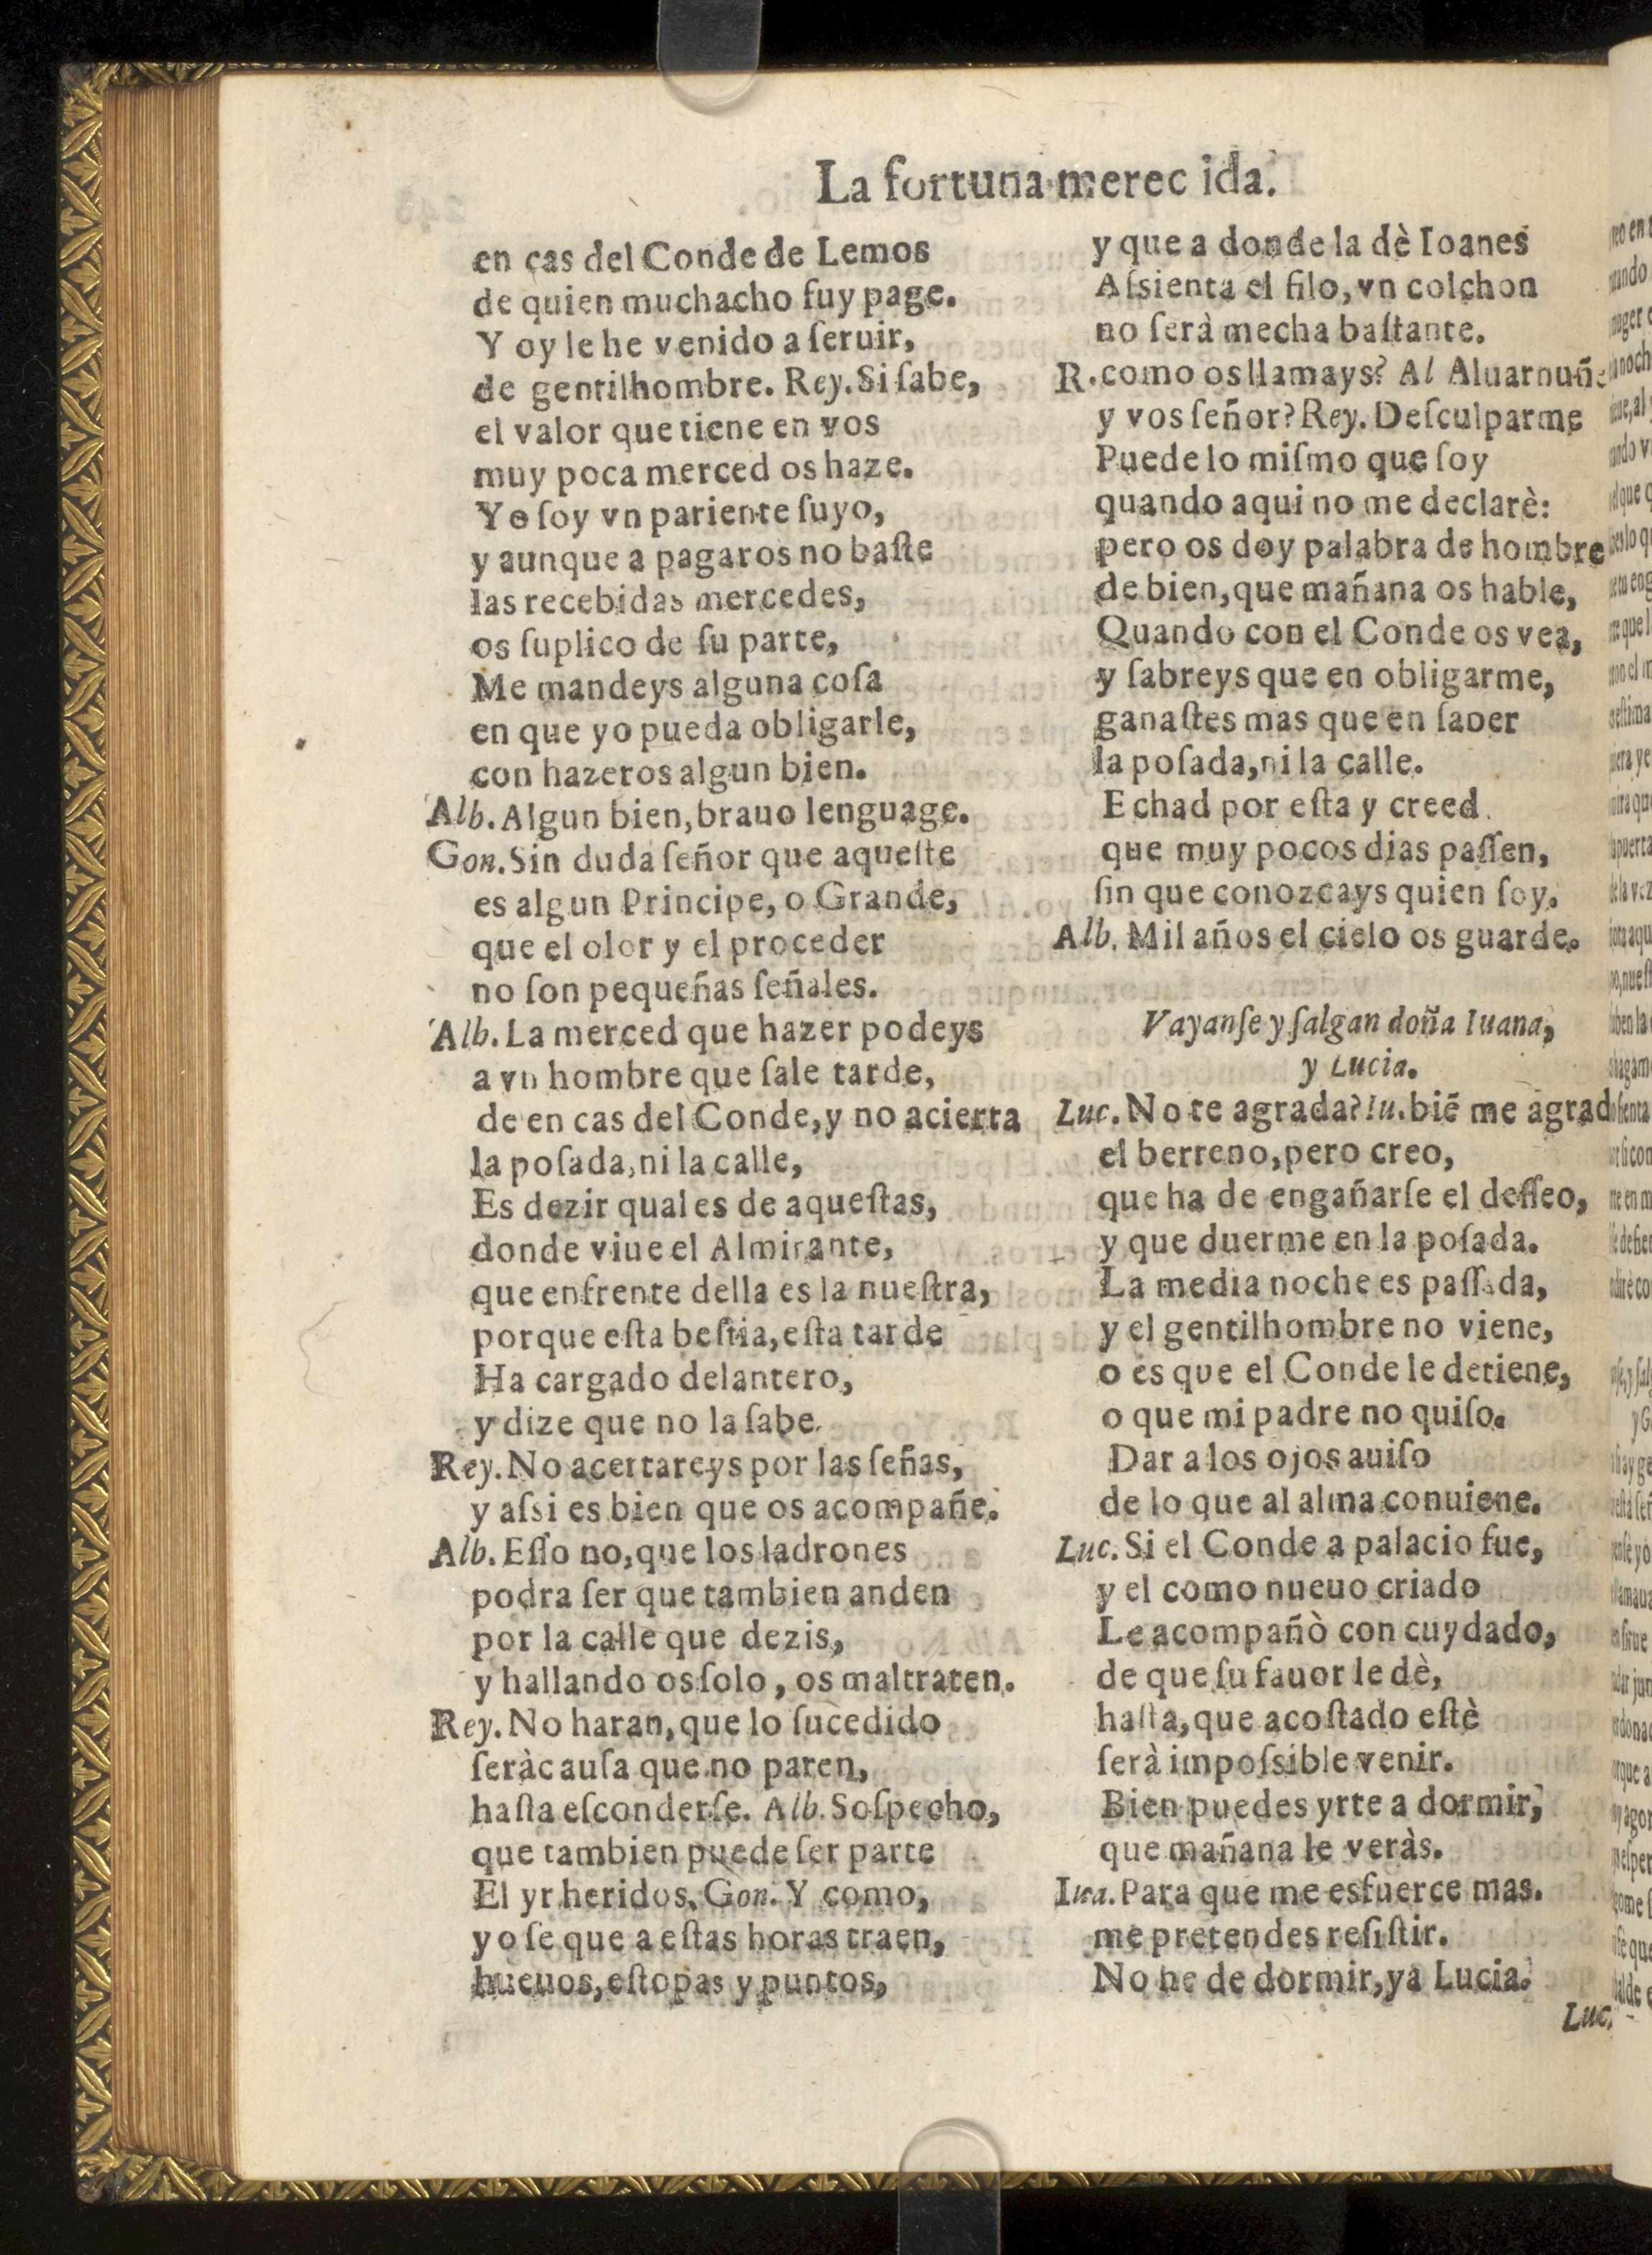 La fortuna merec ida.
en cas del Conde de Lemos
de quien muchacho fuy page.
Y oy le he venido a ſeruir,
de gentilhombre. Rey. Si ſabe,
el valor que tiene en vos
muy poca merced os haze.
Yo ſoy vn pariente ſuyo,
y aunque a pagaros no baſte
las recebidas mercedes,
os ſuplico de ſu parte,
Me mandeys alguna coſa
en que yo pueda obligarle,
con hazeros algun bien.
Alb. Algun bien, brauo lenguage.
Gon. Sin duda ſeñor que aqueſte
es algun Principe, o Grande,
que el olor y el proceder
no ſon pequeñas ſeñales.
Alb. La merced que hazer podeys
a vn hombre que ſale tarde,
de en cas del Conde, y no acierta
la poſada, ni la calle,
Es dezir qual es de aqueſtas,
donde viue el Almirante,
que enfrente della es la nueſtra,
porque eſta beſtia, eſta tarde
Ha cargado delantero,
y dize que no la ſabe.
Rey. No acertareys por las ſeñas,
y aſsi es bien que os acompañe.
Alb. Eſſo no, que los ladrones
podra ſer que tambien anden
por la calle que dezis,
y hallando os ſolo, os maltraten.
Rey. No haran, que lo ſucedido
ſerà cauſa que no paren,
haſta eſconderſe. Alb. Soſpecho,
que tambien puede ſer parte
El yr heridos. Gon. Y como,
yo ſe que a eſtas horas traen,
hueuos, eſtopas y puntos,
y que a donde la dè Ioanes
Aſsienta el filo, vn colchon
no ſerà mecha baſtante.
R. como os llamays? Al Aluarnuñe
y vos ſeñor? Rey. Deſculparme
Puede lo miſmo que ſoy
quando aqui no me declarè:
pero os doy palabra de hombre
de bien, que mañana os hable,
Quando con el Conde os vea,
y ſabreys que en obligarme,
ganaſtes mas que en ſaber
la poſada, ni la calle.
Echad por eſta y creed
que muy pocos dias paſſen,
ſin que conozcays quien ſoy.
Alb. Mil años el cielo os guarde.
Vayanſe y ſalgan doña Iuana,
y Lucia.
Luc. No te agrada? Iu. biẽ me agrad
el berreno, pero creo,
que ha de engañarſe el deſſeo,
y que duerme en la poſada.
La media noche es paſſada,
y el gentilhombre no viene,
o es que el Conde le detiene,
o que mi padre no quiſo.
Dar a los ojos auiſo
de lo que al alma conuiene.
Luc. Si el Conde a palacio fue,
y el como nueuo criado
Le acompañò con cuydado,
de que ſu fauor le dè,
haſta, que acoſtado eſtè
ſerà impoſsible venir.
Bien puedes yrte a dormir,
que mañana le veràs.
Iua. Para que me esfuerce mas.
me pretendes reſiſtir.
No he de dormir, ya Lucia.
Luc.